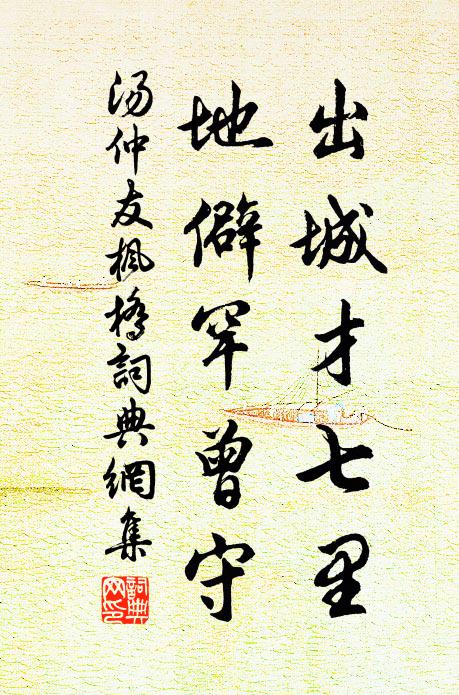 出城才七里
地僻罕曾守
汤仲友枫桥詞典網集
詞典
网印